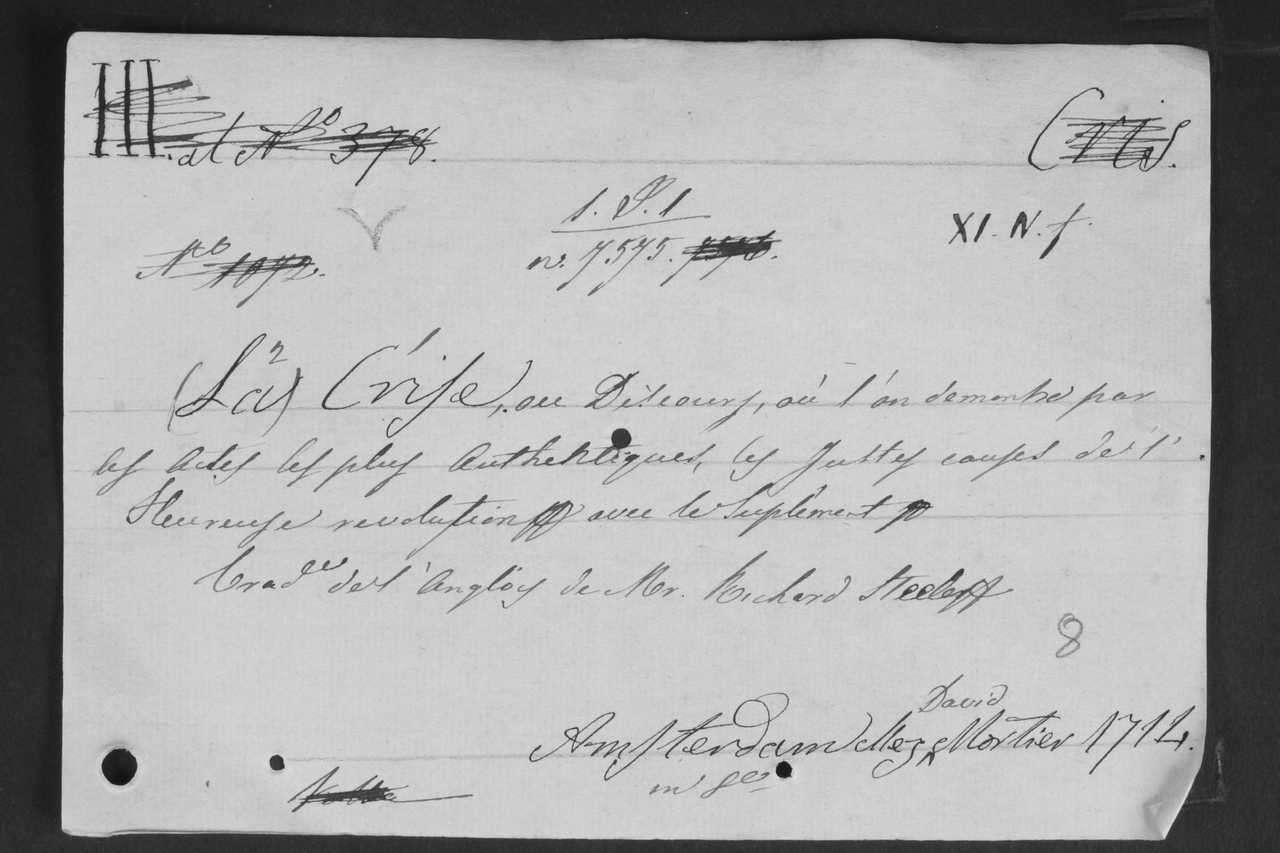 III. al No 378.
1. P. 1
XI. N. f.
No 1072.
n. 7575. 7576.
2 1
(La) Crise, ou Discours, où l'on demontre par
les Actes les plus Authentiques, les Justes causes de l'
Heureuse revolution avec le Suplement
trad.ue de l'Anglois de Mr. Richard Steele
8
David
Amsterdam chez Mortier 1714.
in 8o